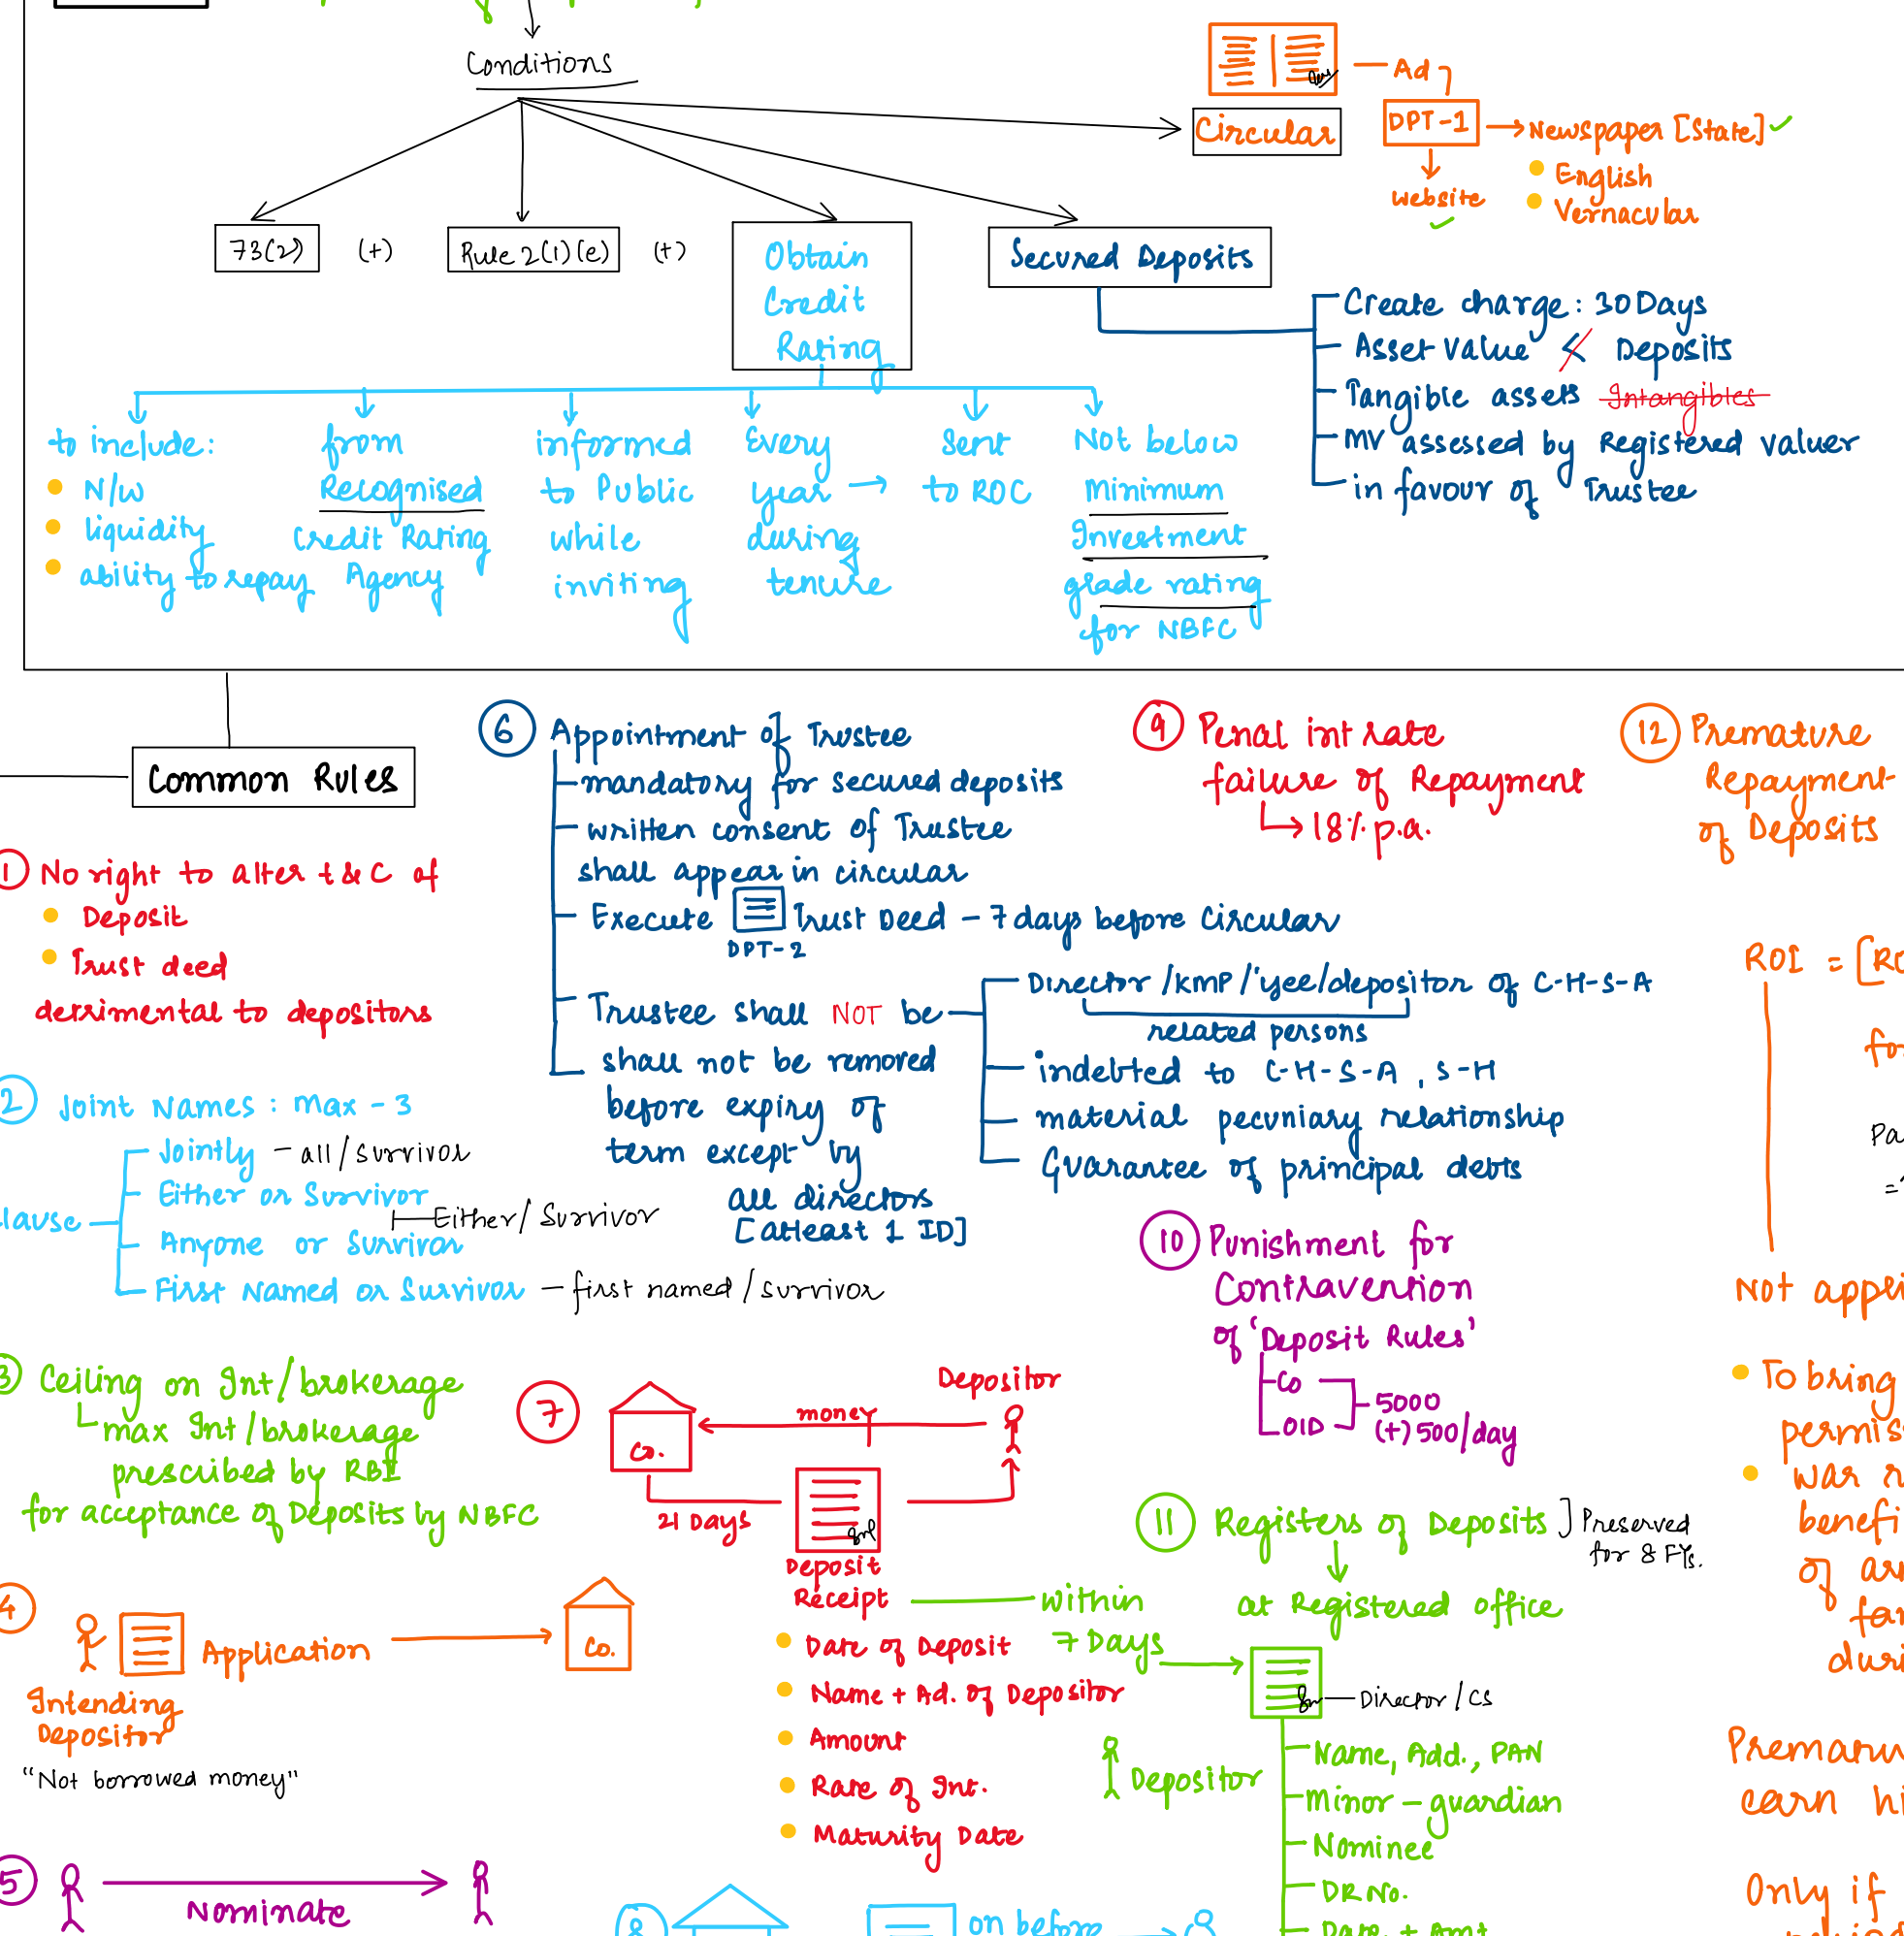 Conditions
Ad
Circular
DPT-1
Newspaper [State]
English
Vernacular
website
73(2) (+) Rule 2(1)(e) (+)
Obtain
Credit
Rating
Secured Deposits
Create charge: 30 Days
Asset value < Deposits
Tangible assets Intangibles
MV assessed by Registered valuer
in favour of Trustee
to include:
N/w
liquidity
ability to repay
from
Recognised
Credit Rating
Agency
informed
to Public
while
inviting
Every
year
during
tenure
Sent
to ROC
Not below
Minimum
Investment
grade rating
for NBFC
Common Rules
1 No right to alter t & C of
Deposit
Trust deed
detrimental to depositors
2 Joint Names: Max - 3
Jointly - all/survivor
Either or Survivor
Either/Survivor
lause
Anyone or Survivor
First Named or Survivor - first named/survivor
3 Ceiling on Int/brokerage
max Int/brokerage
prescribed by RBI
for acceptance of Deposits by NBFC
4
Application
Co.
Intending
Depositor
"Not borrowed money"
5
Nominate
6 Appointment of Trustee
mandatory for secured deposits
written consent of Trustee
shall appear in circular
Execute Trust Deed - 7 days before Circular
DPT-2
Trustee shall NOT be
Director/KMP/'yee/depositor of C-H-S-A
related persons
indebted to C-H-S-A, S-H
material pecuniary relationship
Guarantee of principal debts
shall not be removed
before expiry of
term except by
all directors
[Atleast 1 ID]
7
Depositor
money
Co.
21 Days
Deposit
Receipt
Date of Deposit
Name + Ad. of Depositor
Amount
Rate of Int.
Maturity Date
within
7 Days
8
on before
9 Penal int rate
failure of Repayment
18% p.a.
10 Punishment for
Contravention
of 'Deposit Rules'
CO
OID
5000
(+) 500/day
11 Registers of Deposits
Preserved
for 8 FYs.
at Registered office
Director/CS
Depositor
Name, Add., PAN
Minor - guardian
Nominee
DR No.
Date + Amt
12 Premature
Repayment
of Deposits
ROI = [RO
for
Pa
Not appli
To bring
permis
was r
benefi
of ar
for
duri
Prematu
earn hi
Only if